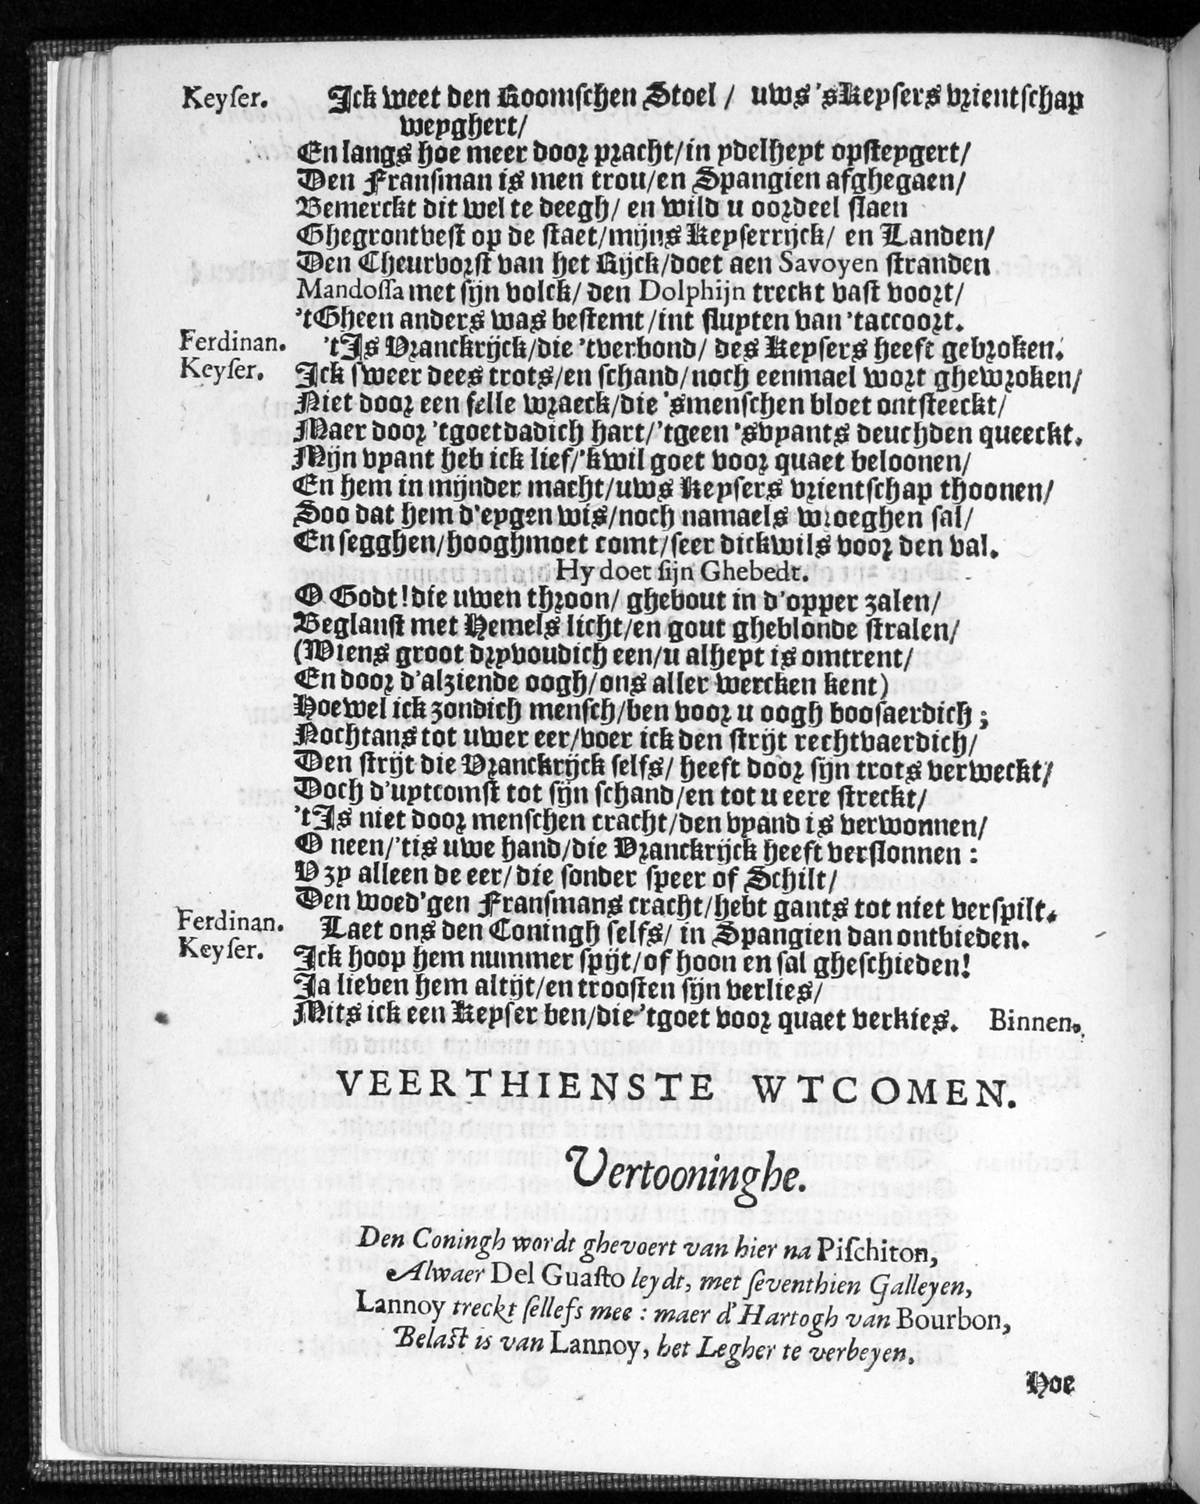 Keyser. Ick weet den Roomschen Stoel / uws 'sKeysers vrientschap
weyghert/
En langs hoe meer door pracht/in ydelheyt opsteygert/
Den Fransman is men trou/en Spangien afghegaen/
Bemerckt dit wel te deegh/ en wild u oordeel slaen
Ghegrontvest op de staet/mijns Keyserrijck/ en Landen/
Den Cheurvorst van het Rijck/doet aen Savoyen stranden
Mandossa met sijn volck/ den Dolphijn treckt vast voort/
'tGheen anders was bestemt/int sluyten van 'taccoort.
Ferdinan. 'tIs Vranckrijck/die 'tverbond/ des Keysers heeft gebroken.
Keyser. Ick sweer dees trots/en schand/noch eenmael wort ghewroken/
Niet door een felle wraeck/die 'smenschen bloet ontsteeckt/
Maer door 'tgoetdadich hart/'tgeen 'svyants deuchden queeckt.
Mijn vyant heb ick lief/'kwil goet voor quaet beloonen/
En hem in mijnder macht/uws Keysers vrientschap thoonen/
Soo dat hem d'eygen wis/noch namaels wroeghen sal/
En segghen/hooghmoet comt/seer dickwils voor den val.
Hy doet sijn Ghebedt.
O Godt! die uwen throon/ ghebout in d'opper zalen/
Beglanst met Hemels licht/en gout gheblonde stralen/
(Wiens groot dryvoudich een/u alheyt is omtrent/
En door d'alziende oogh/ons aller wercken kent)
Hoewel ick zondich mensch/ben voor u oogh boosaerdich;
Nochtans tot uwer eer/voer ick den strijt rechtvaerdich/
Den strijt die Vranckrijck selfs/ heeft door sijn trots verweckt/
Doch d'uytcomst tot sijn schand/en tot u eere streckt/
'tIs niet door menschen cracht/den vyand is verwonnen/
O neen/'tis uwe hand/die Vranckrijck heeft verslonnen:
V zy alleen de eer/die sonder speer of Schilt/
Den woed'gen Fransmans cracht/hebt gants tot niet verspilt.
Ferdinan. Laet ons den Coningh selfs/ in Spangien dan ontbieden.
Keyser. Ick hoop hem nummer spijt/of hoon en sal gheschieden!
Ja lieven hem altijt/en troosten sijn verlies/
Mits ick een Keyser ben/die 'tgoet voor quaet verkies. Binnen.
VEERTHIENSTE WTCOMEN.
Vertooninghe.
Den Coningh wordt ghevoert van hier na Pischiton,
Alwaer Del Guasto leydt, met seventhien Galleyen,
Lannoy treckt sellefs mee: maer d'Hartogh van Bourbon,
Belast is van Lannoy, het Legher te verbeyen.
Hoe